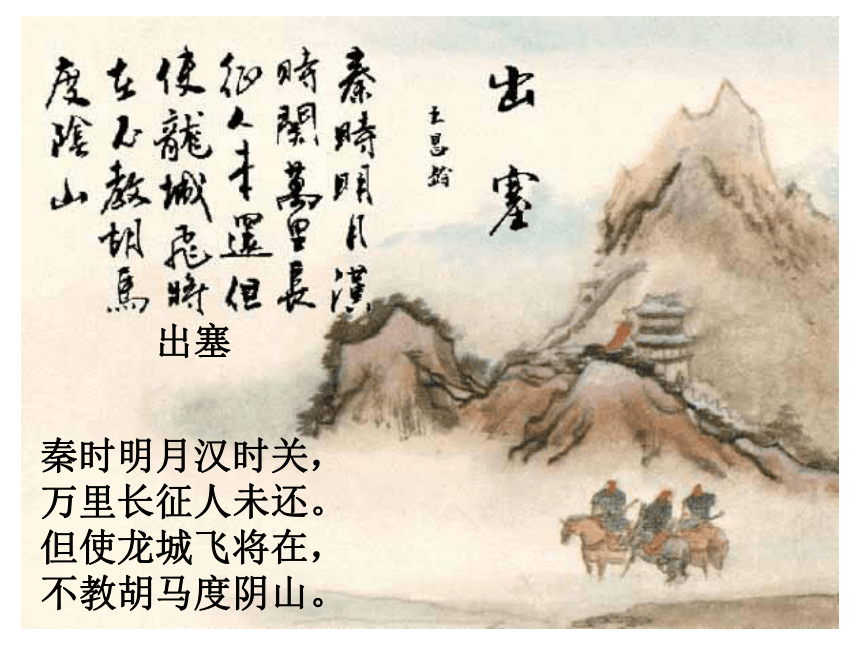 出塞
王昌齡
秦時明月漢
時關萬里長
征人未還但
使龍城飛將
在不教胡馬
度陰山
出塞
秦时明月汉时关，
万里长征人未还。
但使龙城飞将在，
不教胡马度阴山。